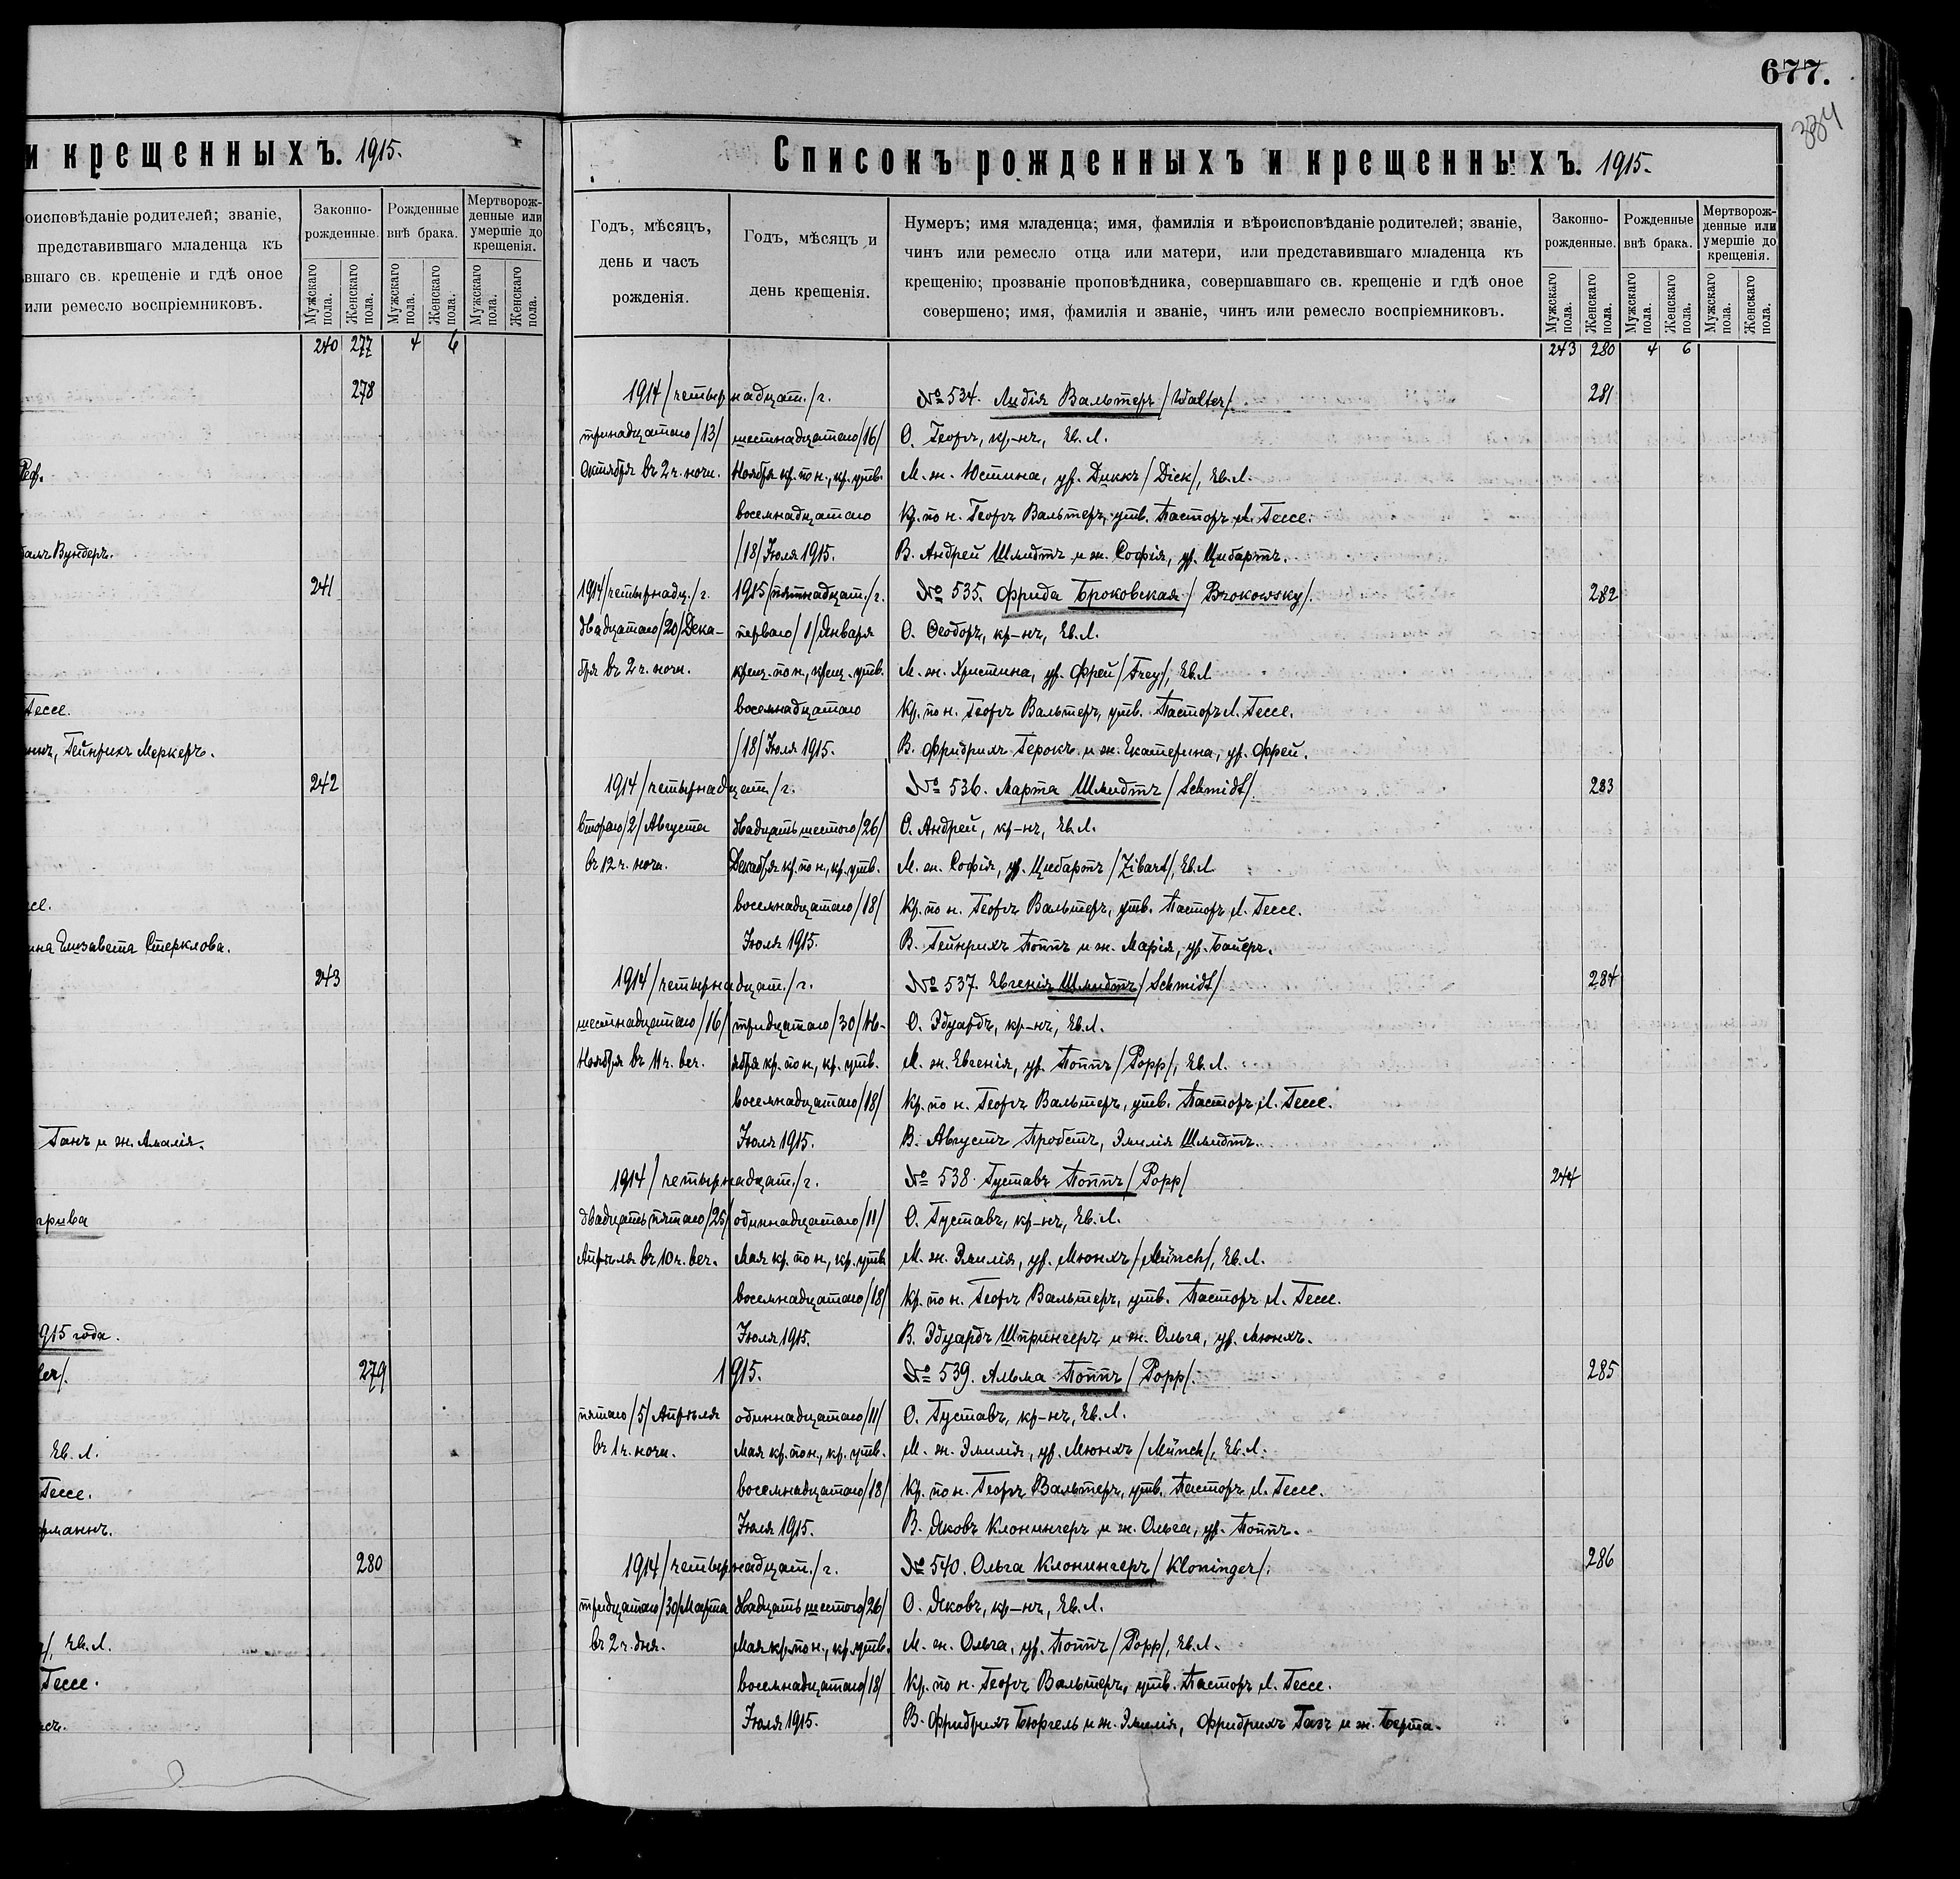 677.
334
и крещенныхъ. 1915.
роисповѣданіе родителей; званіе,
представившаго младенца къ
вшаго св. крещеніе и гдѣ оное
или ремесло воспріемниковъ.
Законно-рожденные.
Рожденные внѣ брака.
Мертворож-денные или умершіе до крещенія.
Мужскаго пола. Женскаго пола. Мужскаго пола. Женскаго пола. Мужскаго пола. Женскаго пола.
240 277 4 6
278
Реф.
Вундеръ.
241
Гессе.
Гейнрихъ Меркеръ.
242
Елизавета Стерклова.
243
Ганъ и ж. Амалія.
1915 года.
279
Ев. Л.
Гессе.
280
Ев. Л.
Гессе.
Списокъ рожденныхъ и крещенныхъ. 1915.
Годъ, мѣсяцъ, день и часъ рожденія.
Годъ, мѣсяцъ и день крещенія.
Нумеръ; имя младенца; имя, фамилія и вѣроисповѣданіе родителей; званіе,
чинъ или ремесло отца или матери, или представившаго младенца къ
крещенію; прозваніе проповѣдника, совершавшаго св. крещеніе и гдѣ оное
совершено; имя, фамилія и званіе, чинъ или ремесло воспріемниковъ.
Законно-рожденные.
Рожденные внѣ брака.
Мертворож-денные или умершіе до крещенія.
Мужскаго пола. Женскаго пола. Мужскаго пола. Женскаго пола. Мужскаго пола. Женскаго пола.
243 280 4 6
1914/четырнадцат./г. № 534. Лидія Вальтеръ /Walter/ 281
тринадцатаго/13/ шестнадцатаго/16/ О. Георгъ, кр-нъ, Ев. Л.
Октября въ 2 ч. ночи. Ноября кр. по н., кр. утв. М. ж. Юстина, ур. Диккъ /Dick/, Ев. Л.
восемнадцатаго Кр. по н. Георгъ Вальтеръ, утв. Пасторъ Л. Гессе.
/18/ Іюля 1915. В. Андрей Шмидтъ и ж. Софія, ур. Цибартъ.
1914/четырнадц./г. 1915/пятнадцат./г. № 535. Фрида Броковская /Brokowsky/. 282
двадцатаго/20/Дека- перваго/1/Января О. Ѳеодоръ, кр-нъ, Ев. Л.
бря въ 2 ч. ночи. крещ. по н., крещ. утв. М. ж. Христина, ур. Фрей /Frey/, Ев. Л
восемнадцатаго Кр. по н. Георгъ Вальтеръ, утв. Пасторъ Л. Гессе.
/18/ Іюля 1915. В. Фридрихъ Герокъ и ж. Екатерина, ур. Фрей.
1914/четырнадцат./г. № 536. Марта Шмидтъ /Schmidt/ 283
втораго/2/Августа двадцать шестого/26/ О. Андрей, кр-нъ, Ев. Л.
въ 12 ч. ночи. Декабря кр. по н., кр. утв. М. ж. Софія, ур. Цибартъ /Zibart/, Ев. Л
восемнадцатаго/18/ Кр. по н. Георгъ Вальтеръ, утв. Пасторъ Л. Гессе.
Іюля 1915. В. Гейнрихъ Поппъ и ж. Марія, ур. Байеръ.
1914/четырнадцат./г. № 537. Евгенія Шмидтъ /Schmidt/ 284
шестнадцатаго/16/ тридцатаго/30/Но- О. Эдуардъ, кр-нъ, Ев. Л.
Ноября въ 11 ч. веч. ября кр. по н., кр. утв. М. ж. Евгенія, ур. Поппъ /Popp/, Ев. Л.
восемнадцатаго/18/ Кр. по н. Георгъ Вальтеръ, утв. Пасторъ Л. Гессе.
Іюля 1915. В. Августъ Пробстъ, Эмилія Шмидтъ.
1914/четырнадцат./г. № 538. Густавъ Поппъ /Popp/ 244
двадцать пятаго/25/ одиннадцатаго/11/ О. Густавъ, кр-нъ, Ев. Л.
Апрѣля въ 10 ч. веч. Мая кр. по н., кр. утв М. ж. Эмилія, ур. Мюнхъ /Münch/, Ев. Л.
восемнадцатаго/18/ Кр. по н. Георгъ Вальтеръ, утв. Пасторъ Л. Гессе.
Іюля 1915. В. Эдуардъ Шпрингеръ и ж. Ольга, ур. Мюнхъ.
1915. № 539. Альма Поппъ /Popp/. 285
пятаго/5/Апрѣля одиннадцатаго/11/ О. Густавъ, кр-нъ, Ев. Л.
въ 1 ч. ночи. Мая кр. по н., кр. утв. М. ж. Эмилія, ур. Мюнхъ /Münch/, Ев. Л.
восемнадцатаго/18/ Кр. по н. Георгъ Вальтеръ, утв. Пасторъ Л. Гессе.
Іюля 1915. В. Яковъ Клонингеръ и ж. Ольга, ур. Поппъ.
1914/четырнадцат./г. № 540. Ольга Клонингеръ /Kloninger/. 286
тридцатаго/30/Марта двадцать шестого/26/ О. Яковъ, кр-нъ, Ев. Л.
въ 2 ч. дня. Мая кр. по н., кр. утв. М. ж. Ольга, ур. Поппъ /Popp/, Ев. Л.
восемнадцатаго/18/ Кр. по н. Георгъ Вальтеръ, утв. Пасторъ Л. Гессе.
Іюля 1915. В. Фридрихъ Бюргель и ж. Эмилія, Фридрихъ Газъ и ж. Берта.